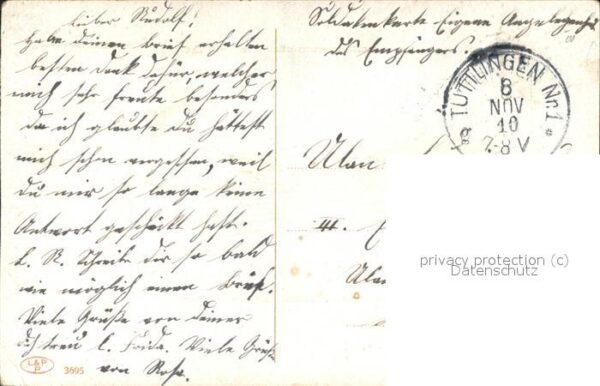 Lieber Rudolf!
Habe deinen brief erhalten
besten dank dafür, welcher
mich sehr freute besonders
da ich glaubte du hättest
mich schon vergessen, weil
du mir so lange keine
Antwort geschickt hast.
L. R. Schreibe dir so bald
wie möglich einen Brief.
Viele Grüße von deiner
dich treu l. Frida. Viele Grüße
von Rosa.
L&P
P
3695
Soldatenkarte Eigene Angelegenheit
des Empfängers.
TUTTLINGEN Nr. 1
8
NOV
10
7-8 V
Ulan
III.
Ulan
privacy protection (c)
Datenschutz